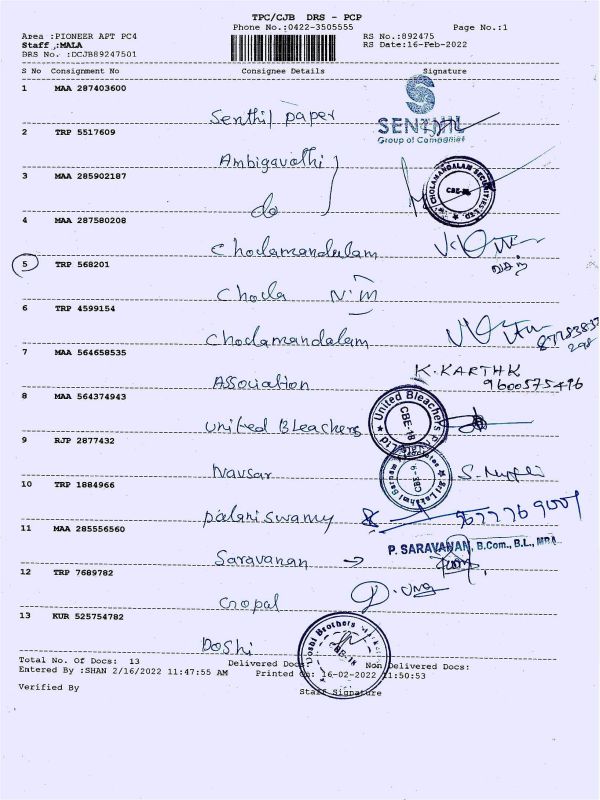 TPC/CJB DRS - PCP
Phone No.:0422-3505555 Page No.:1
Area :PIONEER APT PC4 RS No.:892475
Staff :MALA RS Date:16-Feb-2022
DRS No. :DCJB89247501
S No Consignment No Consignee Details Signature
1 MAA 287403600
Senthil paper
SENTHIL
Group of Companies
2 TRP 5517609
Ambigavathi
3 MAA 285902187
do
CHOLAMANDALAM SECURITIES LTD.
4 MAA 287580208
Cholamandalam
5 TRP 568201
Chola N.M
6 TRP 4599154
Cholamandalam
7 MAA 564658535
Association K.KARTHK
9600575496
8 MAA 564374943
United Bleachers
United Bleachers
CBE-18
9 RJP 2877432
Navsar
10 TRP 1884966
Palaniswamy
11 MAA 285556560
Saravanan
P. SARAVANAN, B.Com., B.L., MBA.
12 TRP 7689782
Gopal
13 KUR 525754782
Doshi
Doshi Brothers
CBE-18
Total No. Of Docs: 13 Delivered Docs: Non Delivered Docs:
Entered By :SHAN 2/16/2022 11:47:55 AM Printed On: 16-02-2022 11:50:53
Verified By Staff Signature